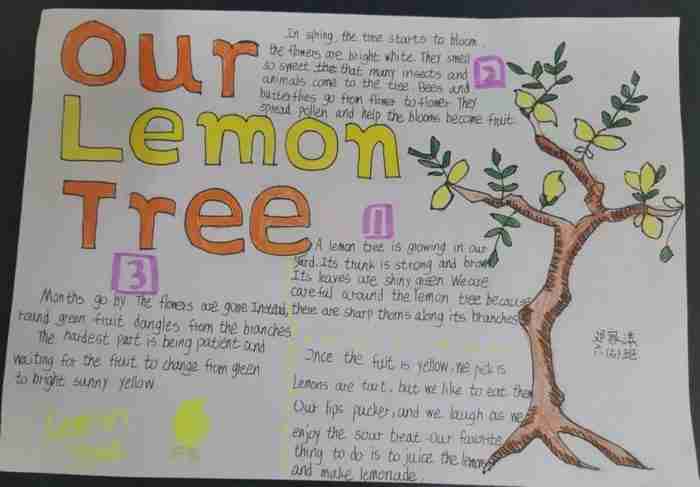 Our
Lemon
Tree
In spring, the tree starts to bloom.
the flowers are bright white. They smell
so sweet that that many insects and
animals come to the tree. Bees and
butterflies go from flower to flower. They
spread pollen and help the blooms become fruit.
2
1
A lemon tree is growing in our
yard. Its trunk is strong and brown
Its leaves are shiny green. We are
careful around the lemon tree because
there are sharp thorns along its branches
3
Months go by. The flowers are gone. Instead,
round green fruit dangles from the branches
The hardest part is being patient and
waiting for the fruit to change from green
to bright sunny yellow
Once the fuit is yellow, we pick is
Lemons are tart, but we like to eat them
Our lips pucker, and we laugh as we
enjoy the sour treat. Our favorite
thing to do is to juice the lemons
and make lemonade.
Lemon